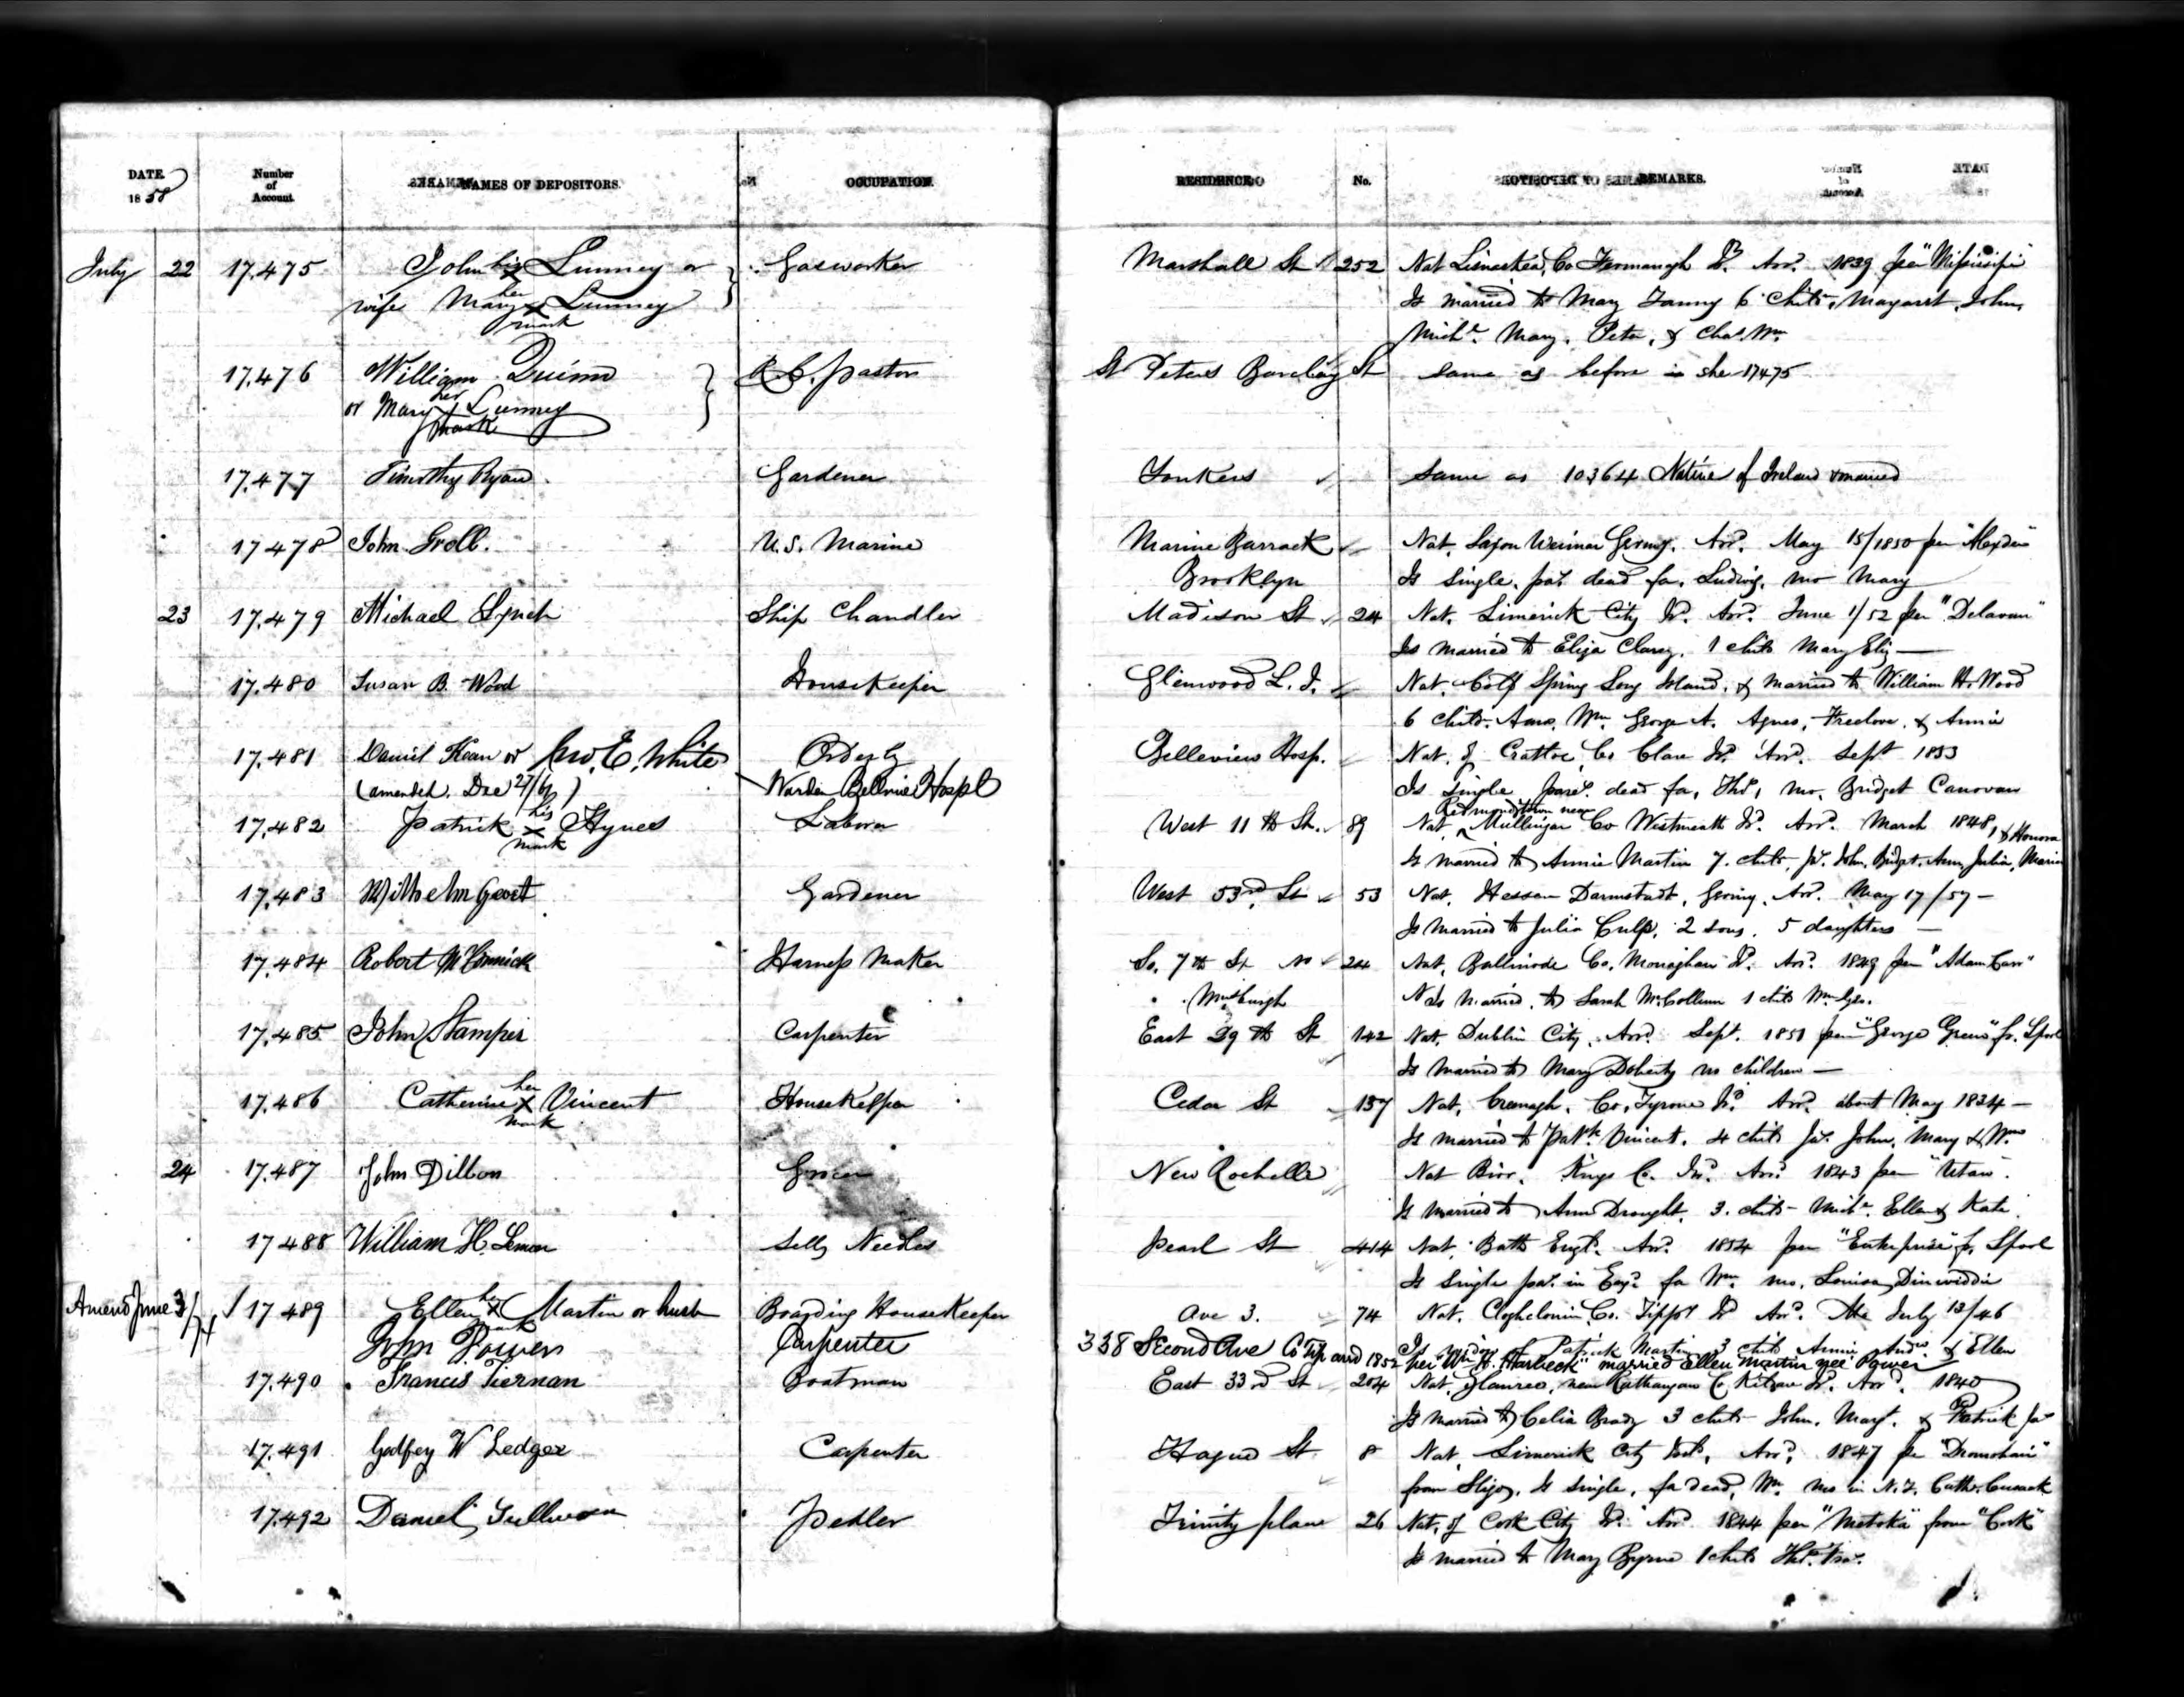 DATE. 1858
Number of Account.
NAMES OF DEPOSITORS.
OCCUPATION.
RESIDENCE.
No.
REMARKS.
July 22 17.475 John his X Lunney or Gasworker Marshall St 252 Nat Lisnaskea, Co Fermanagh Id. Arrd. 1839 per "Missisipi"
wife Mary her X Lunney Is married to Mary 6 childn, Margaret, John,
mark Michl. Mary, Peter, & Chas. Wm.
17.476 William Quinn R. C. Pastor St Peters Barclay St same as before in she 17475
or Mary her X Lunney
mark
17.477 Timothy Ryan Gardener Yonkers same as 10364 Native of Ireland & married
17478 John Groll. U.S. Marine Marine Barrack Nat. Saxon Weimar Germy. Arrd. May 15/1850 per
Brooklyn Is single, pars. dead fa. Ludwig, mo Mary
23 17.479 Michael Lynch Ship Chandler Madison St 24 Nat. Limerick City Id. Arrd. June 1/52 per "Delavan"
Is married to Eliza Clancy, 1 child Mary Eliz —
17.480 Susan B. Wood Housekeeper Glenwood L. I. Nat. Cold Spring Long Island, & married to William H. Wood
6 childn. Amos, Wm. George A. Agnes, Freelove, & Annie
17.481 Daniel Kean or Jno. E. White Orderly Belleview Hosp. Nat. of Crattoe, Co Clare Id. Arrd. Sept 1853
(amended. Dec 27/67) Warden Bellvue Hospl Is single pars. dead fa, Ths, mo, Bridget Canovan
17.482 Patrick his X Hynes Laborer West 11th St. 89 Nat. Redmondstown near Mullingar Co Westmeath Id. Arrd. March 1848, & Honora
mark Is married to Annie Martin 7. childn, Js. John, Bridget, Ann, Julia, Maria
17.483 Wilhelm Gardener West 53rd. St 53 Nat. Hessen Darmstadt, Germy. Arrd. May 17/57 –
Is married to Julia Culp, 2 sons, 5 daughters —
17.484 Robert Harness Maker So. 7th St No 24 Nat. Ballinode Co. Monaghan Id. Arrd. 1849 per "Adam Carr"
Wmsburgh Is married to Sarah McCollum 1 child Wm Geo.
17.485 John Stamper Carpenter East 29th St 142 Nat. Dublin City, Arrd. Sept. 1851 per "George Green" fr. Lpool
Is married to Mary Doherty no children —
17.486 Catherine her X Vincent Housekeeper Cedar St 137 Nat. Co. Tyrone Id. Arrd. about May 1834 –
mark Is married to Patk. Vincent. 4 childn Js. John, Mary & Wm
24 17.487 John Dillon Grocer New Rochelle Nat Birr, Kings C. Id. Arrd. 1843 per "Utan".
Is married to Ann Drought, 3. childn – Michl. Ellen & Kate.
17488 William H. Lemon Sells Needles Pearl St 414 Nat. Bath Engld. Arrd. 1854 per "Enterprise" fr. Lpool
Is single pars. in Engd. fa Wm. mo. Louisa Dinwiddie
Amend June 3/74 17489 Ellen her X Martin or husb Boarding HouseKeeper Ave 3. 74 Nat. Co. Tippy Id Arrd. July 13/46
mark
John Power Carpenter 338 Second Ave Is widow of Patrick Martin 3 childn Annie Andw. & Ellen
Co Tip arrd 1852 per "Wm H. Harbeck" married Ellen Martin nee Power
17.490 Francis Tiernan Boatman East 33rd St 204 Nat. near Rathangan C. Kildare Id. Arrd. 1840
Is married to Celia Brady 3 childn – John, Margt. & Patrick Js
17.491 Godfrey W Ledger Carpenter Hague St. 8 Nat. Limerick City Ird, Arrd. 1847 per "Dromahair"
from Sligo, Is single, fa dead, Wm. mo in N.Y. Cathe. Cusack
17.492 Daniel Sullivan Pedler Trinity place 26 Nat. of Cork City Id. Arrd 1844 per "Metoka" from "Cork"
Is married to Mary Byrne 1 child Ths. Fras.